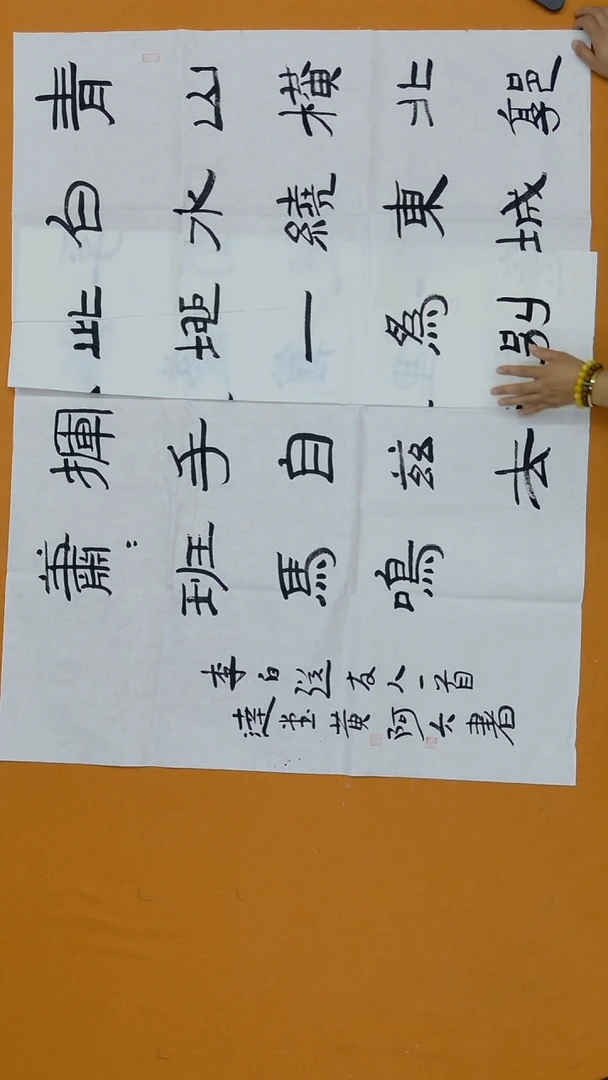 青山橫北郭
白水繞東城
此地一爲別
揮手自茲去
蕭:班馬鳴
李白送友人一首
堂黄阿六書